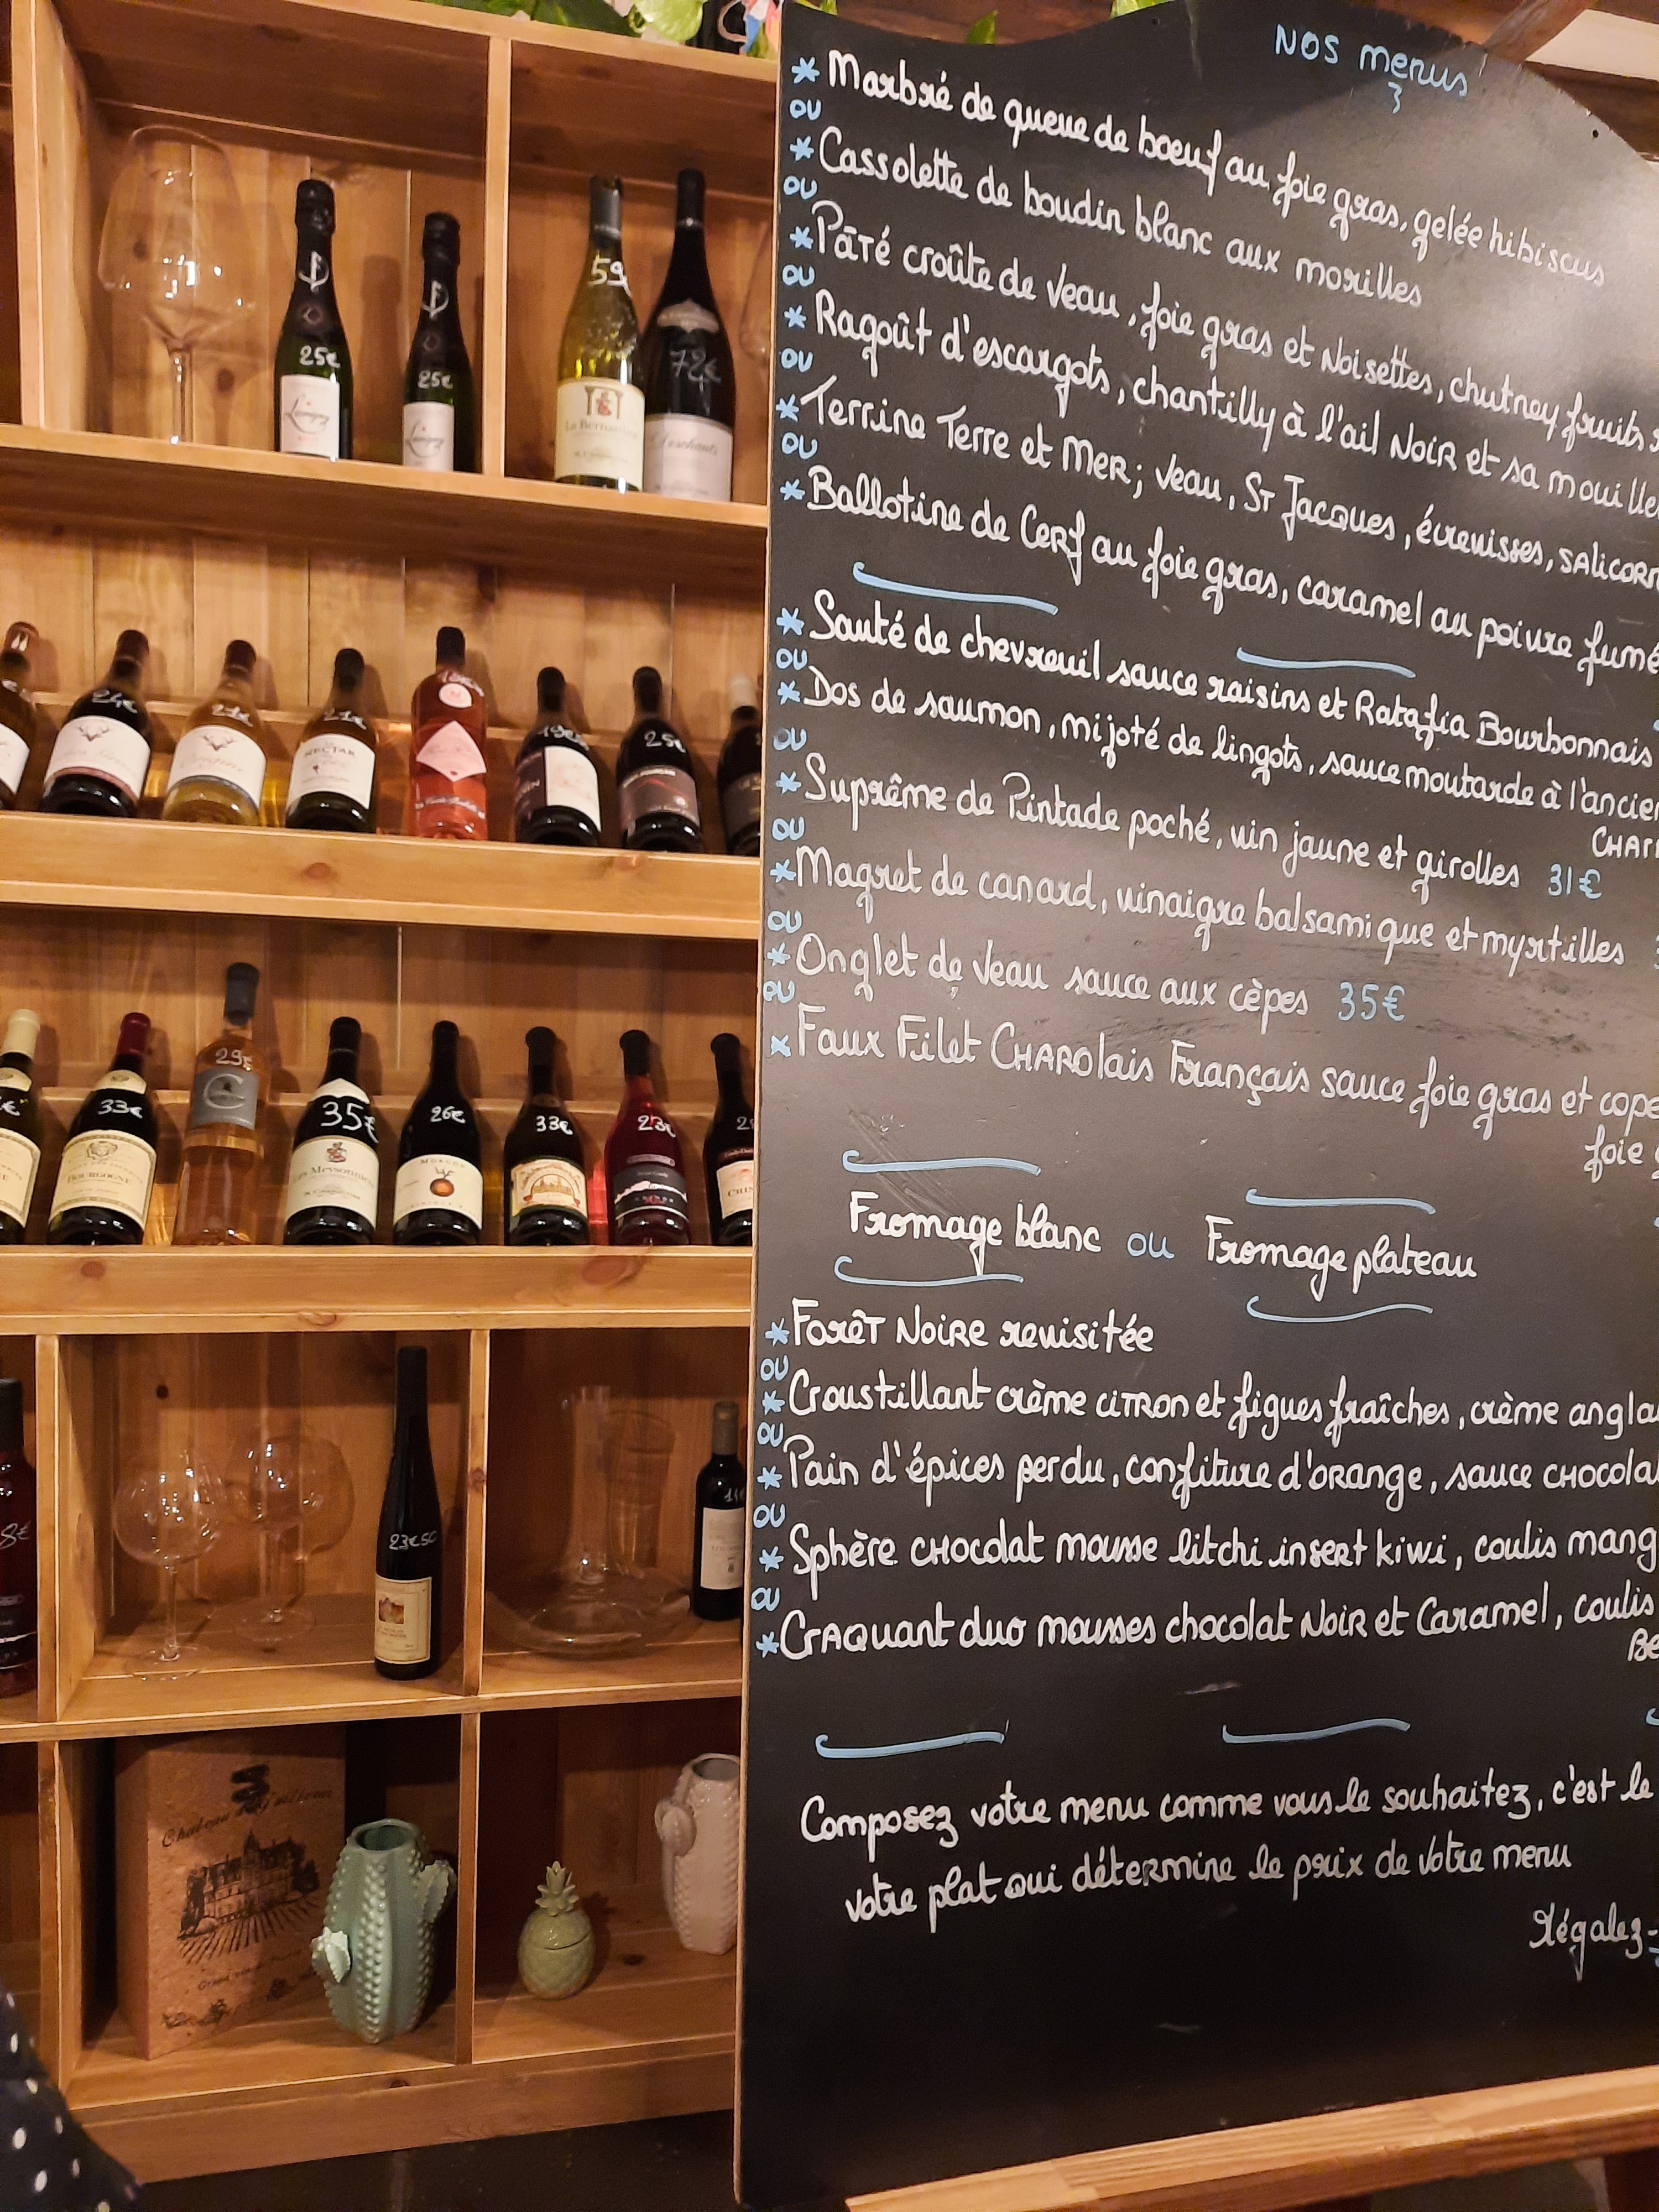 25€
25€
59
La Bernardine
72€
24€
21€
21€
NECTAR
19€
25€
33€
BOURGOGNE
29€
35€
Les Meysonniers
26€
MORGON
33€
23€
8€
23€50
Grand vin de
NOS menus
* Marbré de queue de boeuf au foie gras, gelée hibiscus
ou
* Cassolette de boudin blanc aux morilles
ou
* Pâté croûte de Veau, foie gras et Noisettes, chutney fruits
ou
* Ragoût d'escargots, chantilly à l'ail Noir et sa mouille
ou
* Terrine Terre et Mer; Veau, St Jacques, écrevisses, salicorn
ou
* Ballotine de Cerf au foie gras, caramel au poivre fumé
* Sauté de chevreuil sauce raisins et Ratafia Bourbonnais
ou
* Dos de saumon, mijoté de lingots, sauce moutarde à l'ancien
CHAR
ou
* Suprême de Pintade poché, vin jaune et girolles 31€
ou
* Magret de canard, vinaigre balsamique et myrtilles
ou
* Onglet de Veau sauce aux cèpes 35€
ou
* Faux Filet CHAROlais Français sauce foie gras et cope
foie g
Fromage blanc ou Fromage plateau
* Forêt Noire revisitée
ou
* Croustillant crème citron et figues fraîches, crème angla
ou
* Pain d'épices perdu, confiture d'orange, sauce chocola
ou
* Sphère chocolat mousse litchi insert kiwi, coulis mang
ou
* Craquant duo mousses chocolat Noir et Caramel, coulis
Be
Composez votre menu comme vous le souhaitez, c'est le
votre plat qui détermine le prix de votre menu
Régalez-